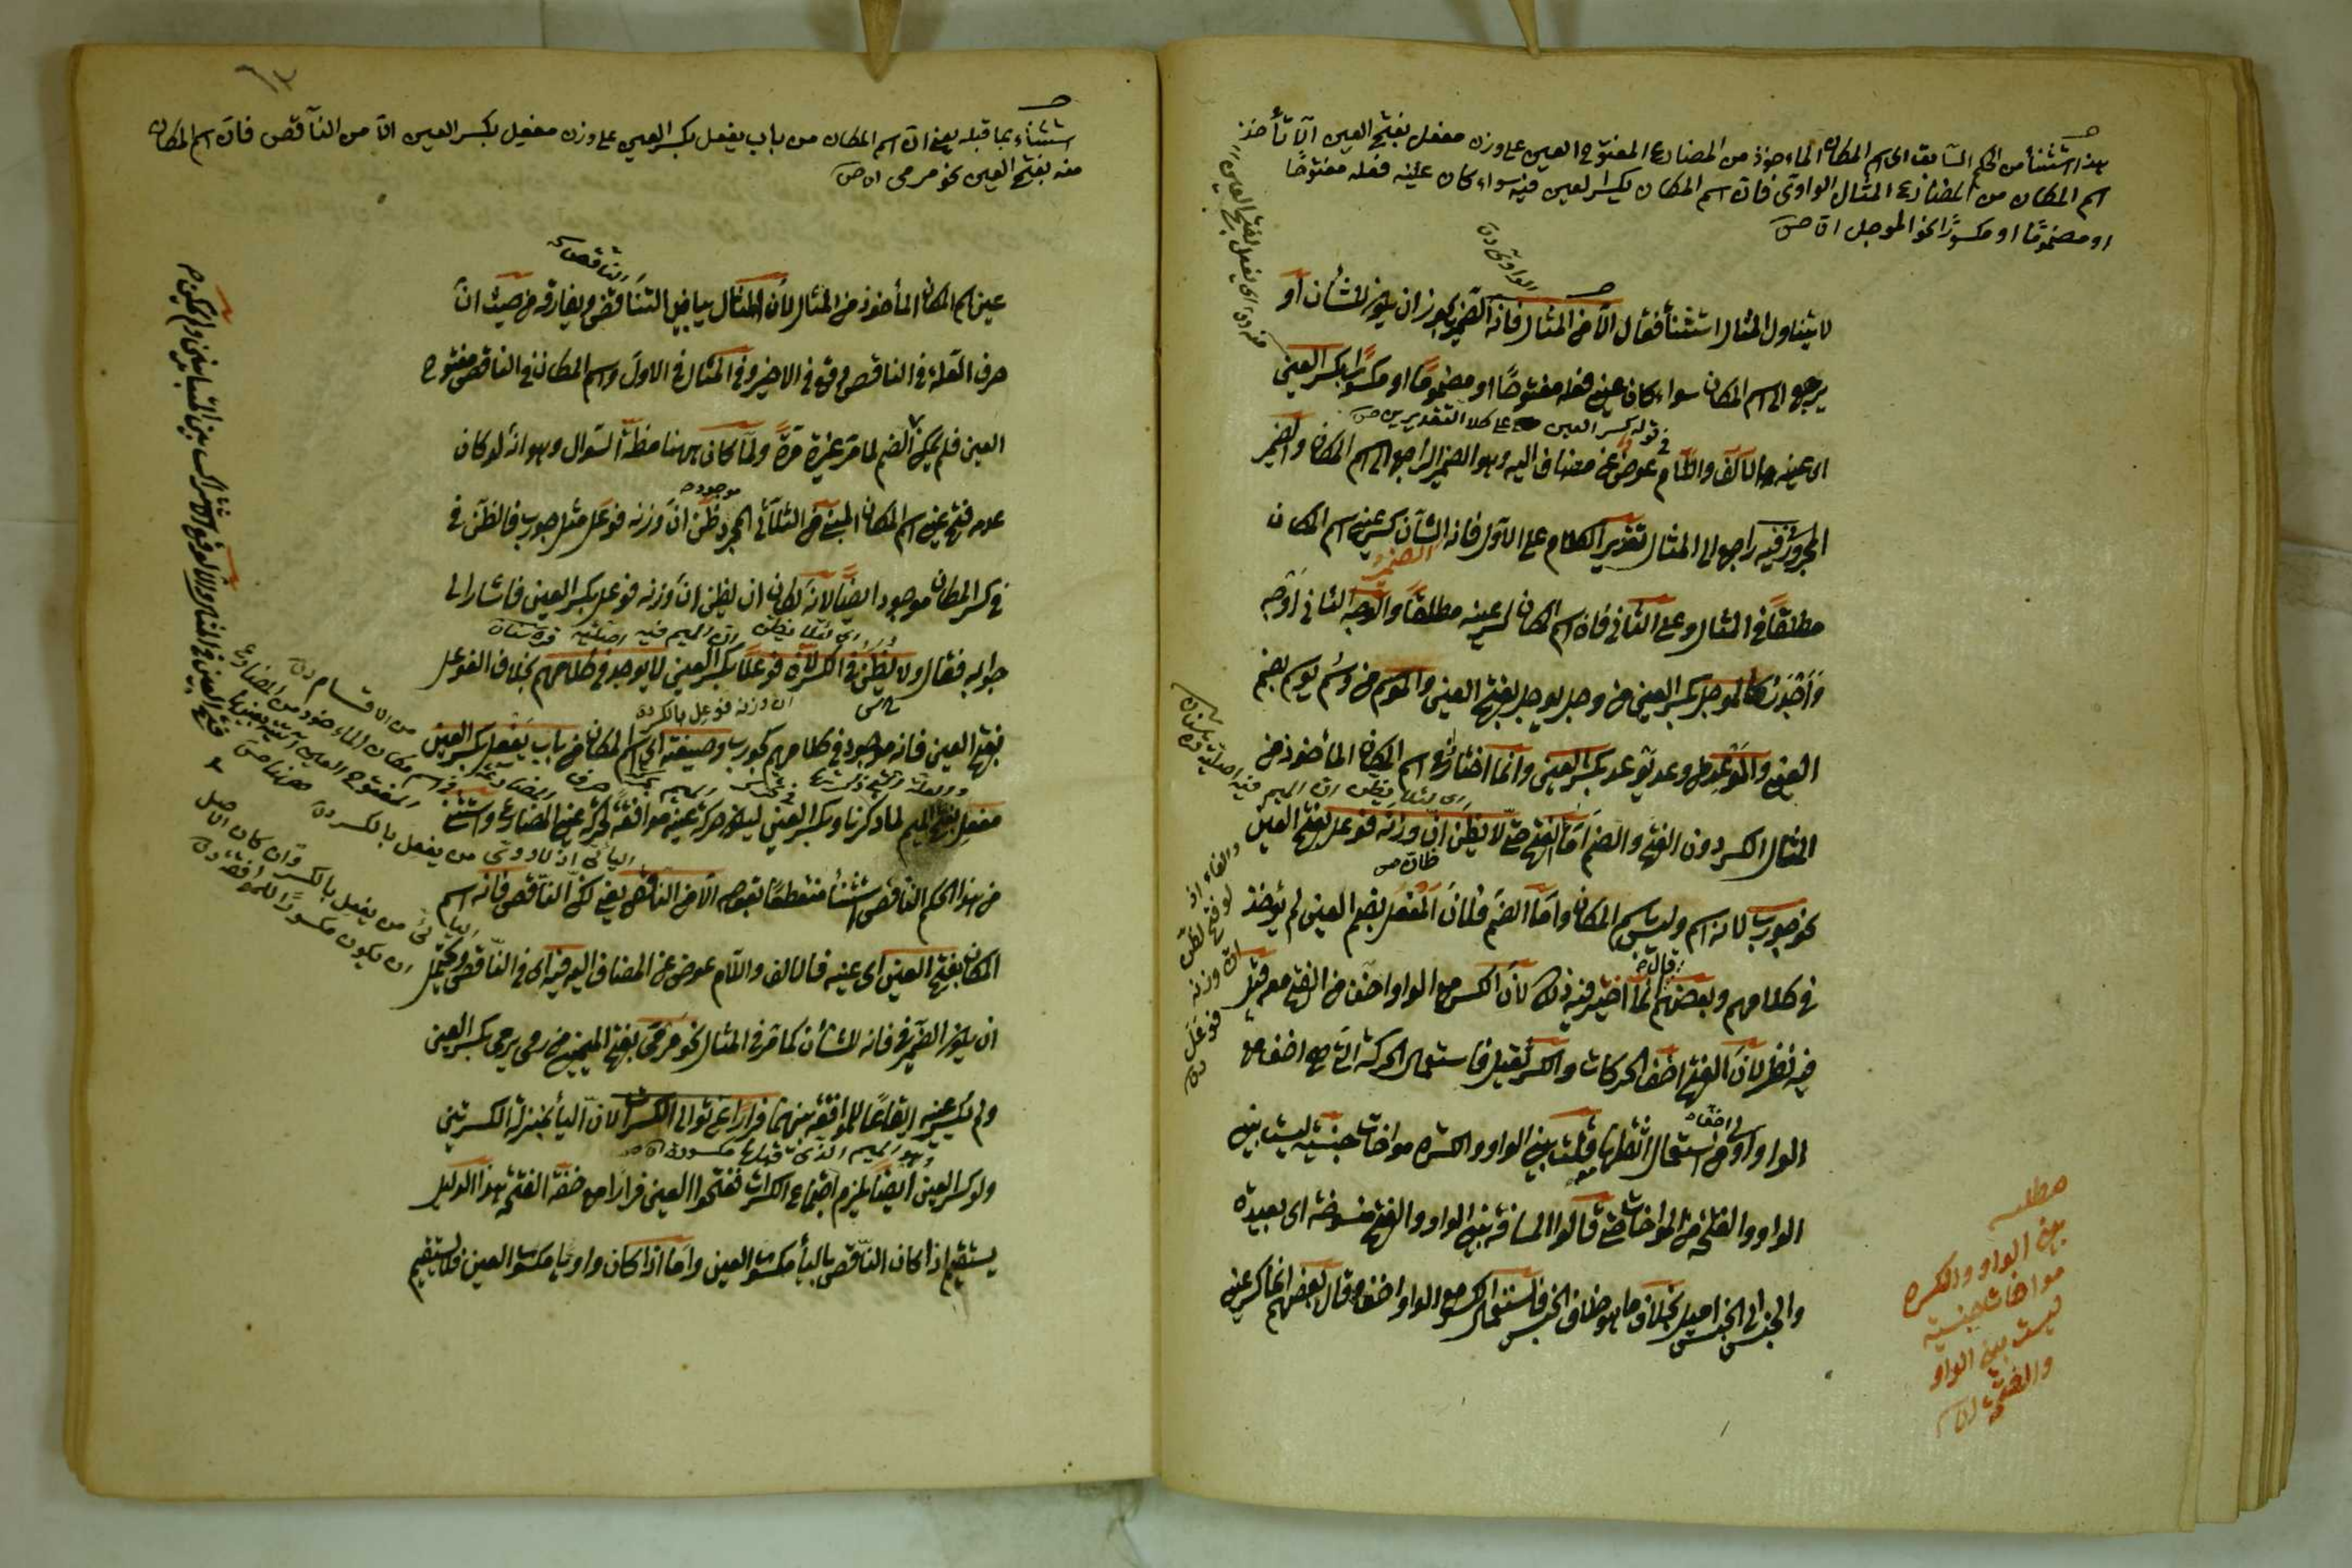 هذا استثناء من الحكم السابق اى اسم المكان الماءخوذ من المضارع المفتوح العين على وزن مفعل بفتح العين الا تأخذ
اسم المكان من المضارع المثال الواوى فان اسم المكان بكسر العين فيه سواء كان عينه فعله مفتوحًا
او مضمومًا او مكسورًا نحو الموجل
الواوى
لا يتناول المثال استثناء فقال الا من المثال فانه الضمير يجوز ان يكون للشأن او
يرجع الى اسم المكان سواء كان عين فعله مفتوحًا او مضمومًا او مكسورًا بكسر العين
قوله بكسر العين على كلا التقديرين
اى عينه فالالف واللام فى عوض عن مضاف اليه وهو الضمير الراجع الى اسم المكان والضمير
المجرور فى فيه راجع الى المثال تقدير الكلام على الاول فان الشان كسر عين اسم المكان
الضمير
مطلقًا فى المثال وعلى الثانى فان اسم المكان كسر عينه مطلقًا والوجه الثانى اوجه
كالموجل بكسر العين من وجل يوجل بفتح العين والموسم من وسم يوسم بضم
العين والموعد من وعد يوعد بكسر العين وانما اختار فى اسم المكان المأخوذ من
اى لئلا يظن ان الميم فيه اصلية
المثال الكسر دون الفتح والضم اما الفتح حتى لا يظن ان وزنه فوعل بفتح العين
نحو جورب لانه اسم وليس باسم المكان واما الضم فلان المفعل بضم العين لم يوجد
قال
فى كلامهم وبعضهم انما اختير فيه ذلك لان الكسر مع الواو اخف من الفتح معه قيل
فيه نظر لان الفتح اخف الحركات والكسر ثقيل فاستعمال الحركة التى هى اخف مع
الواو اولى من استعمال اثقلها قلت بين الواو والكسرة مواخات جنسية ليست بين
الواو والفتحة من المواخات حتى قالوا المسافة بين الواو والفتح منسوخة اى بعيدة
والجنس الى الجنس اميل بخلاف ما هو خلاف الجنس فاستعمال الكسر مع الواو اخف وقال بعضهم انما كسر عين
والفاء اذ
لو فتح لظن
ان وزنه
فوعل
مطلب
بين الواو والكسرة
مواخات جنسية
ليست بين الواو
والفتحة
استثناء بما قبله يعنى ان اسم المكان من باب يفعل بكسر العين على وزن مفعل بكسر العين الا من الناقص فان اسم المكان
منه بفتح العين نحو مرمى
الناقص
عين اسم المكان المأخوذ من المثال لان المثال يباين الناقص ويفارقه من حيث ان
حرف العلة فى الناقص وقع فى الاخير وفى المثال فى الاول واسم المكان فى الناقص مفتوح
العين فلم يمكن الضم لما مر غيرة مرة ولما كان ههنا مظنة السؤال وهو انه لو كان
موجودة
عدم فتح عين اسم المكان المبنى من الثلاثى المجرد ظن ان وزنه فوعل مثل جورب فالظن فى
فى كسر المكان موجود ايضًا لانه لكان ان يظن ان وزنه فوعل بكسر العين فاشار الى
اى لئلا يظن ان الميم فيه اصلية
جوابه فقال ولا يظن فى الكسر لان فوعلًا بكسر العين لا يوجد فى كلامهم بخلاف الفوعل
ان وزنه فوعل بالكسر
بفتح العين فانه موجود فى كلامهم كجورب وصيغته اى اسم المكان من باب يفعل بكسر العين
مفعل بفتح الميم لما ذكرنا وبكسر العين ليكون حركة عينه موافقة لحركة عين المضارع واستثنى
من هذا الحكم الناقص استثناء منقطعًا بقوله الا من الناقص يعنى لكن الناقص فانه اسم
المكان بفتح العين اى عينه فالالف واللام عوض عن المضاف اليه فيه اى فى الناقص ويحتمل
ان يكون الضمير فى فانه للشأن كما مر فى المثال نحو مرمى بفتح الميمين من رمى يرمى بكسر العين
ولم يكسر عينه ايقاعًا للموافقة بينهما فرارًا عن توالى الكسرات لان الياء بمنزلة الكسرتين
وهو الميم الذى قبلها مكسورة
ولو كسر العين ايضًا يلزم اجتماع الكسرات ففتحوا العين فرارًا مع خفة الفتحة هذا الدليل
يستقيم اذا كان الناقص باليأ مكسور العين واما اذا كان واويا مكسور العين فلا يستقيم
من الاقسام
اسم مكان الماءخوذ من المضارع
المفتوح العين
اليائى اذ لا ووى من يفعل بالكسر
اليائى من يفعل بالكسر وان كان الاصل
ان يكون مكسورًا للموافقة